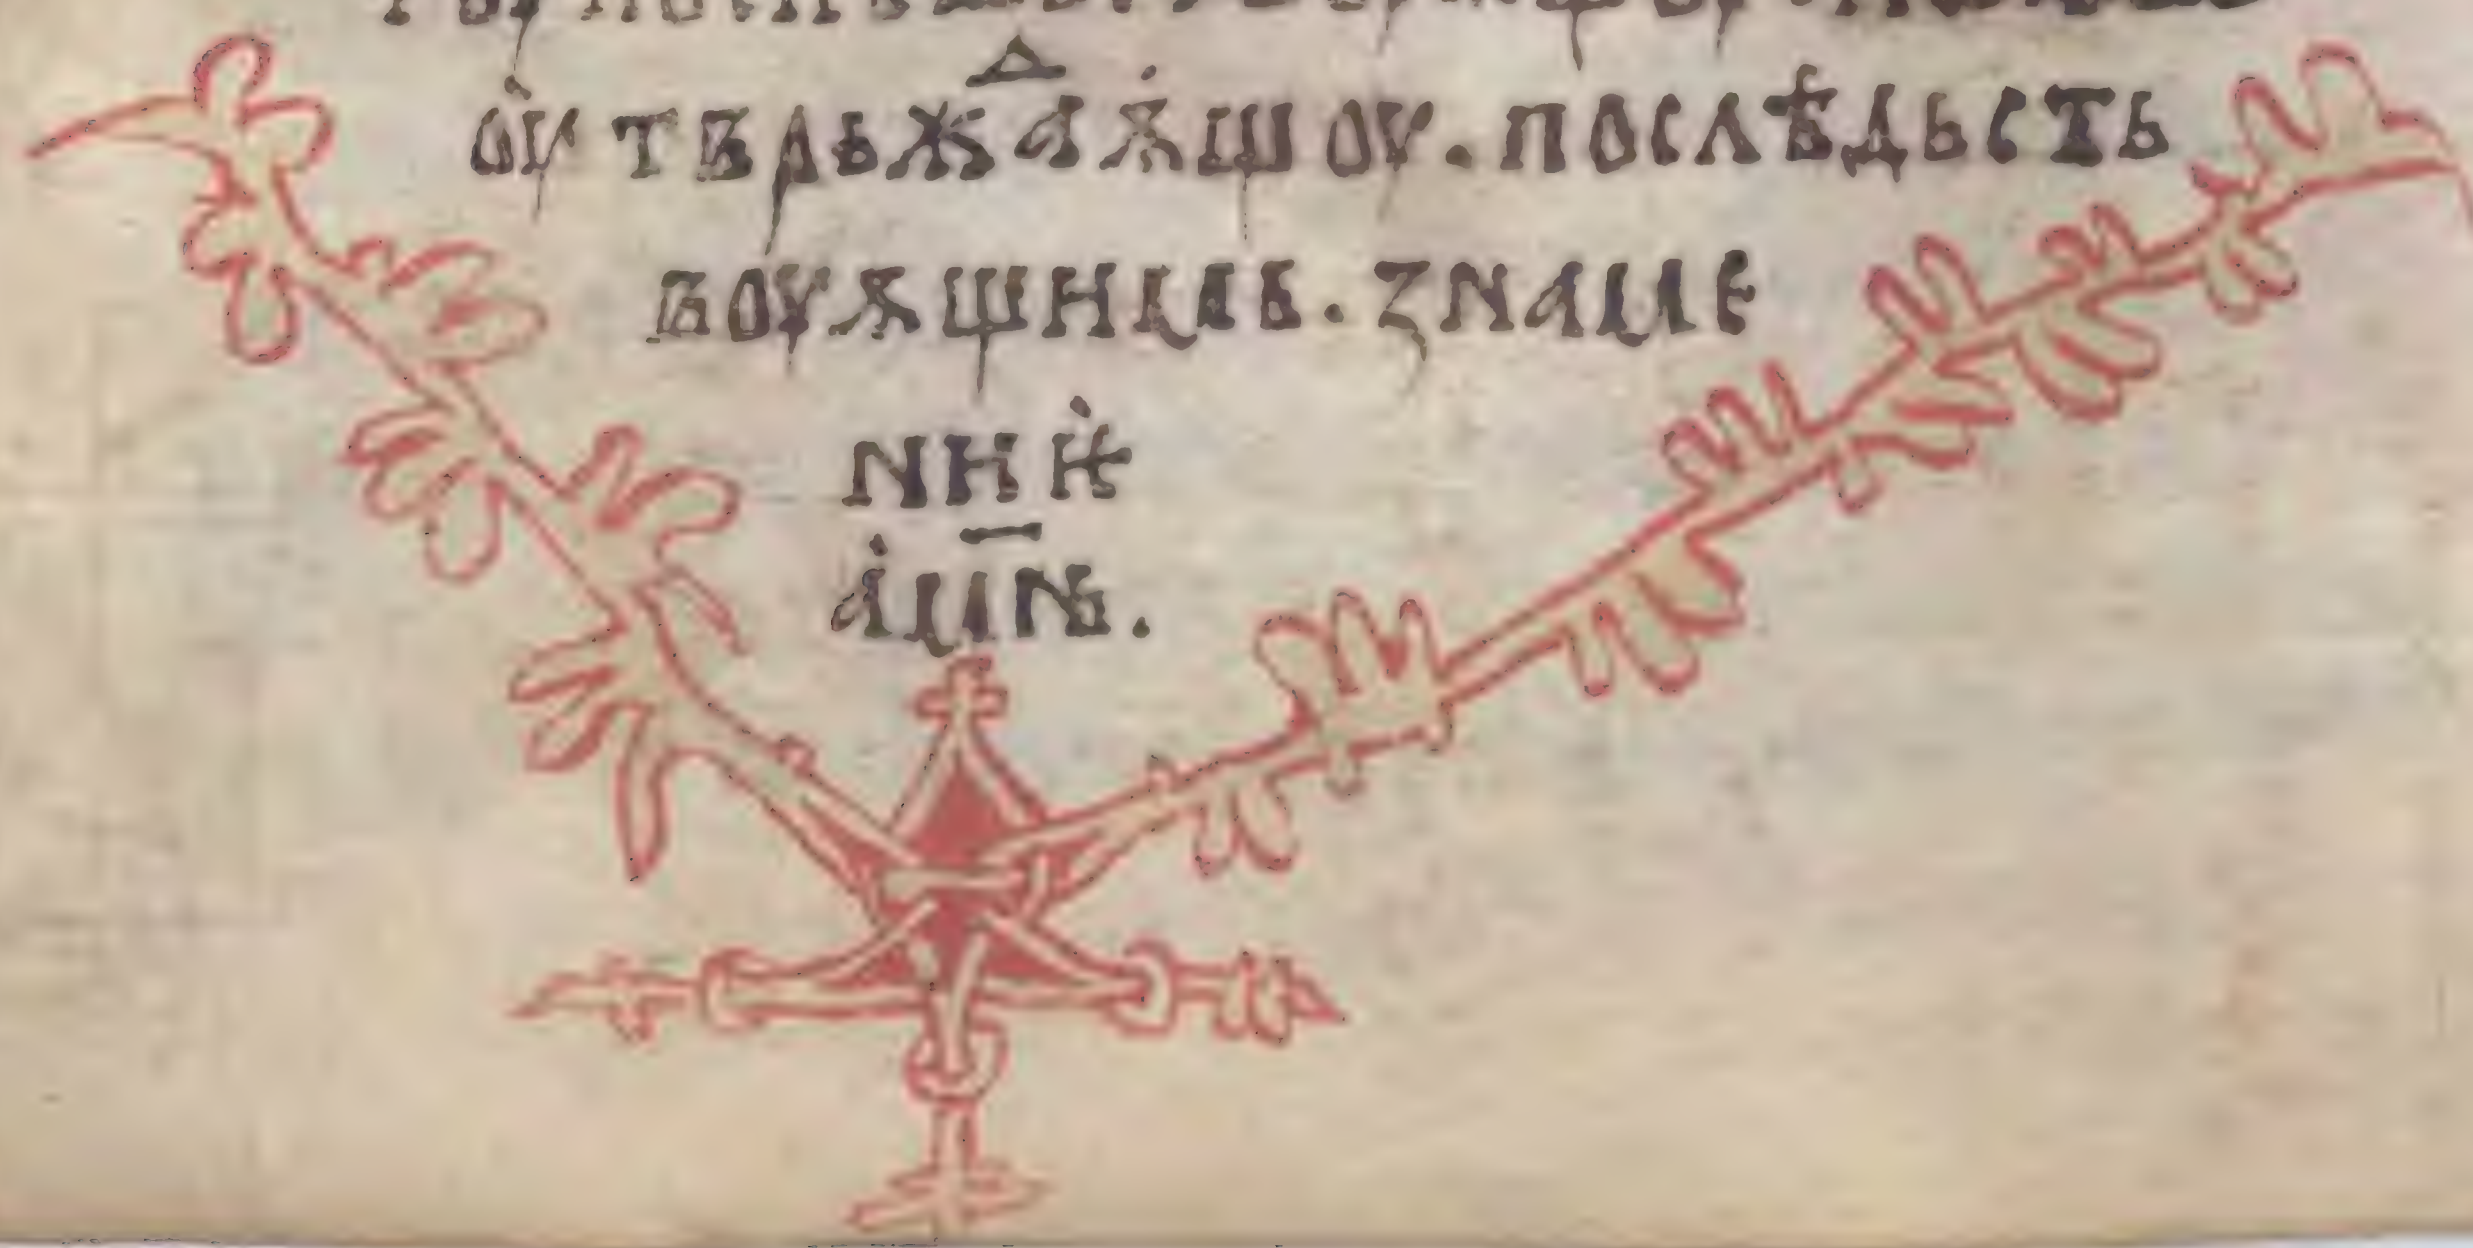 оу тврьжаѫшоу · послѣдьсть
воуѫщиимь · знаме
ниꙗ
амнъ ·